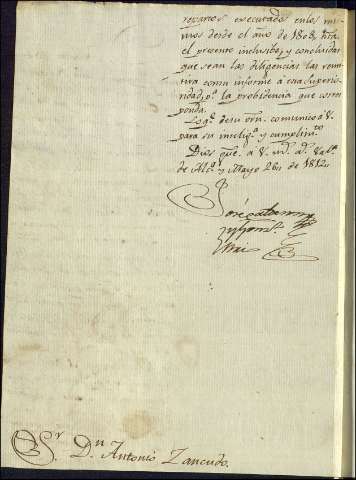 reparos executados en los mis
mos desde el año de 1808, hta.
el presente inclusibe, y concluidas
que sean las diligencias las remi
tira con su informe á esa Superio
ridad pa. la probidencia que corres
ponda.
Lo q. de su orn. comunico á V.
para su inteliga. y cumplimto.
Dios gue. á V. ms. as.
de Alca. y Mayo 26, de 1812.
José
Sr. Dn. Antonio Zancudo.